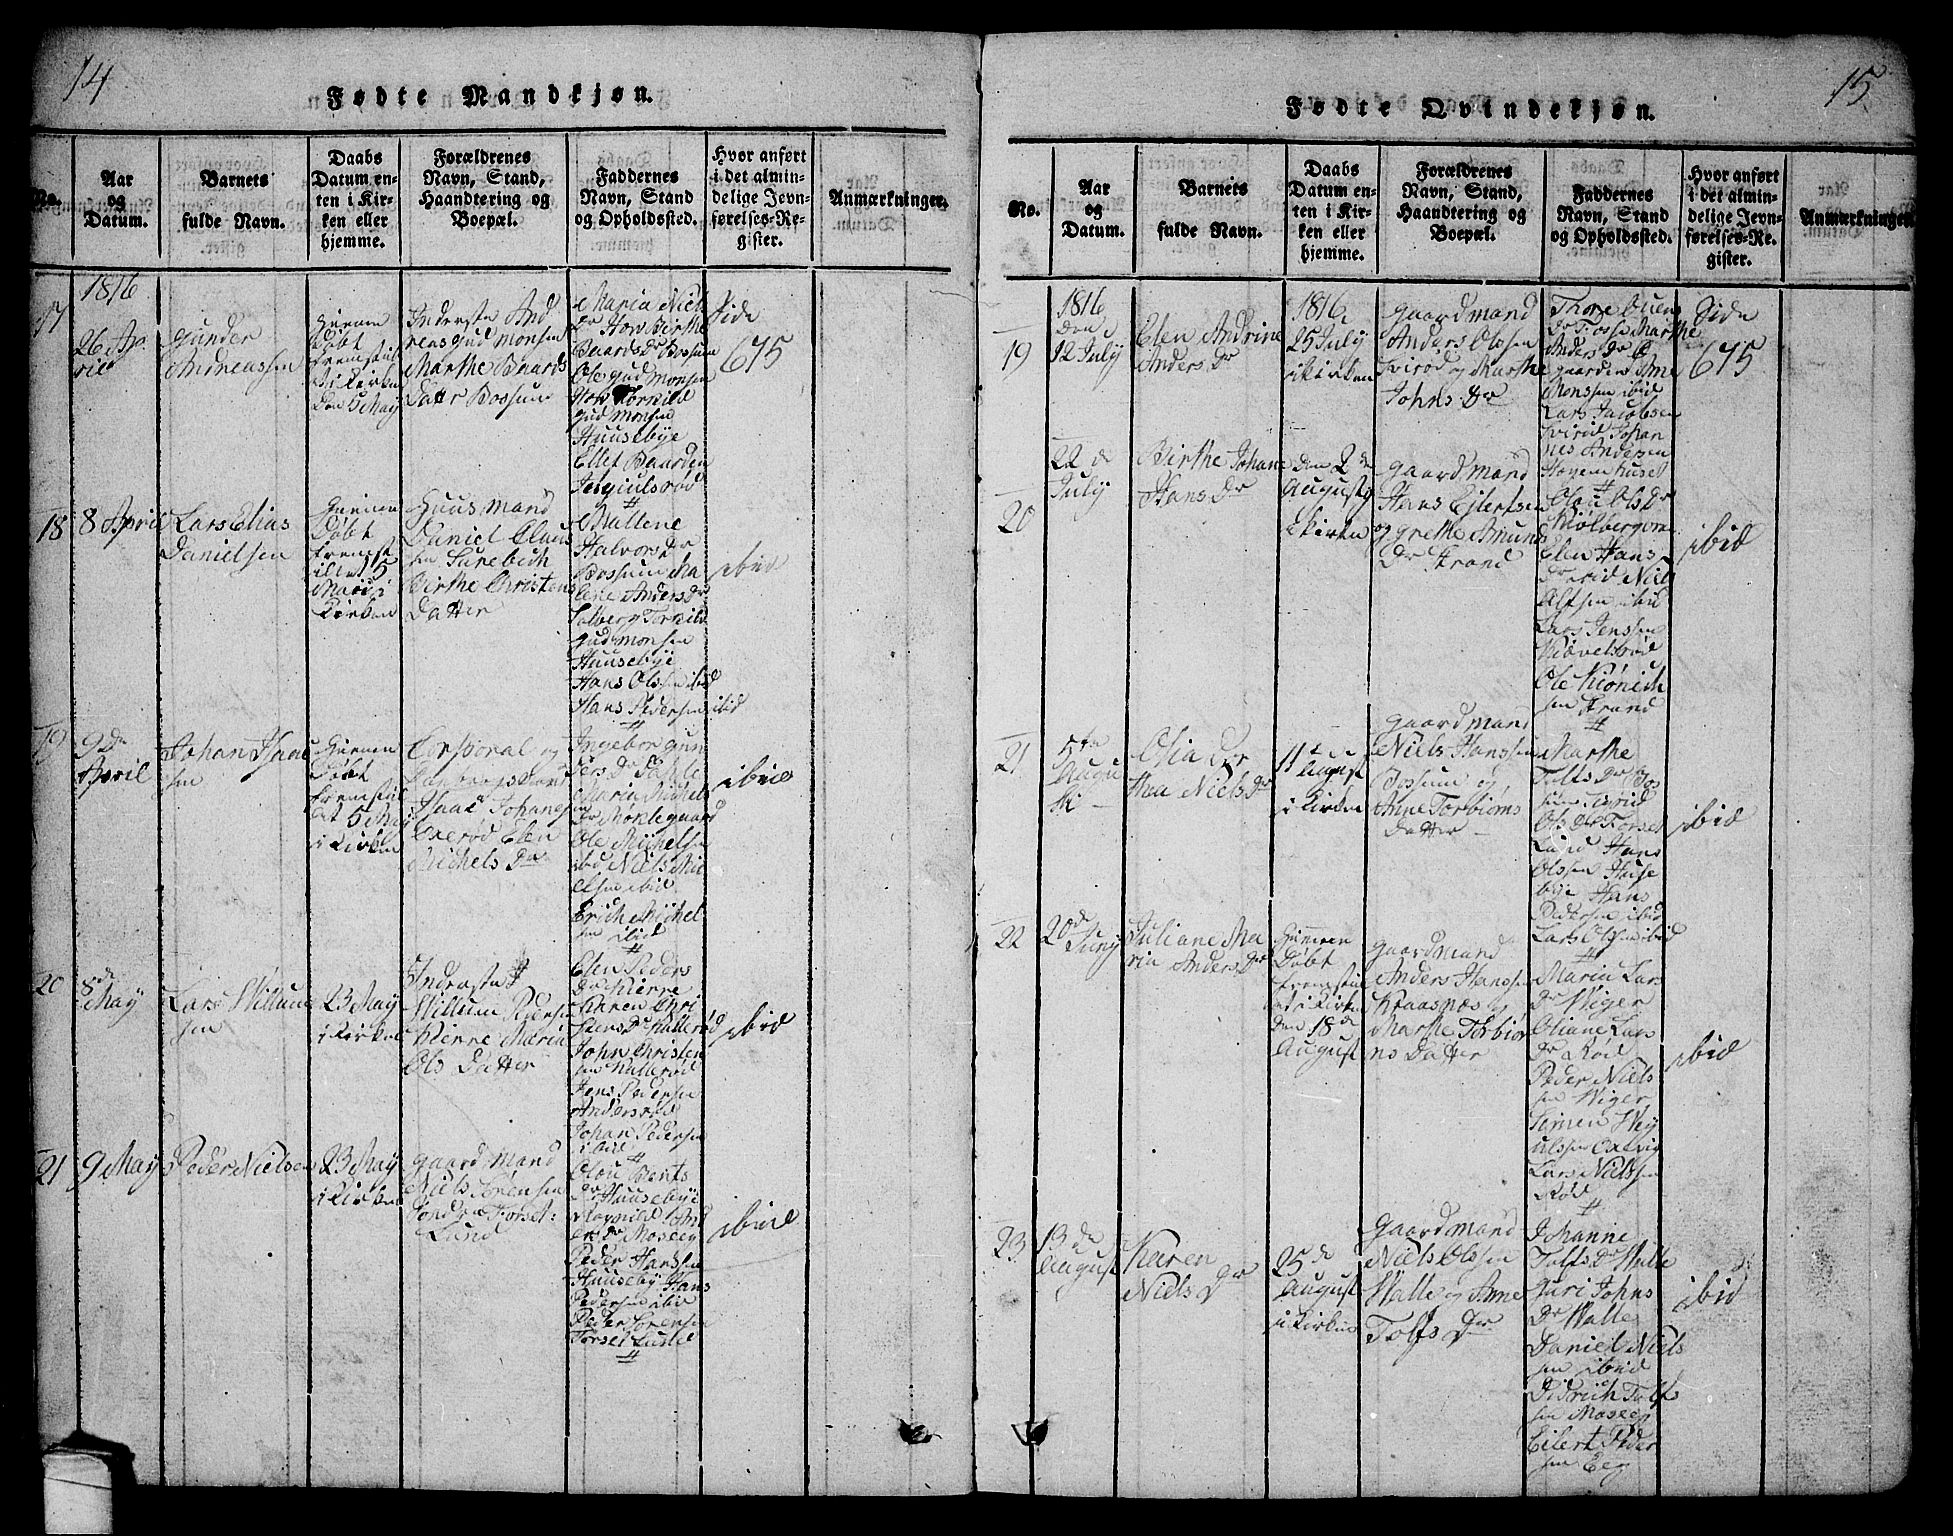 14
Fødte Mandkjøn.
No.
Aar
og
Datum.
Barnets
fulde Navn.
Daabs
Datum en-
ten i Kir-
ken eller
hjemme.
Forældrenes
Navn, Stand,
Haandtering og
Boepæl.
Faddernes
Navn, Stand
og Opholdssted.
Hvor anført
i det almin-
delige Jevn-
førelses-Re-
gister.
Anmærkninger.
17
1816
26 Ap.
ril
Gunder
Andreassen
Hiemme
Døbt
fremstil
i Kirken
den 5 May
Inderste And
reas Gudmonsen
Marthe Baards
Datter Bossum
Maria Niels
Dr Hov Birthe
Baards Dr Bossum
Ole Gudmonsen
Hov Torkild
Gudmonsen
Huusebye
Ellef Baardsen
Side
675
18
8 April
Lars Elias
Danielsen
Hiemme
Døbt
fremst
15
May i
Kirken
Huusmand
Daniel Claus
sen
Birthe Christens
Datter
Halvors Dr
Bossum Ma
Anders Dr
Solberg Torkild
Gudmonsen
Huusebye
Hans Olssen ibid
Hans Pedersen ibid
ibid
19
9de
April
Johan Isaac
sen
Hiemme
Døbt
fremstil
let 5 May
i Kirken
Corsporal og
Isaac Johanes
Oxerød Elen
Michels Dr
Ingebor Gun
ders Dr
Maria Michels
Dr Morlegaard
Ole Michelsen
ibid Niels Mic
elsen ibid
Erich Michel
sen ibid
ibid
20
8de
May
Lars Willum
sen
23 May
i Kirken
Inderste
Willum Pedersen
Kierre Maria
Ols Datter
Elen Peders
Dr Kierre
Karen Chri
stens Dr Kallerød
John Christen
sen Kallerød
Jens Pedersen
Andersrød
Johan Pedersen
ibid
ibid
21
9 May
Peder Nielsen
23 May
i Kirken
Gaardmand
Niels Sørensen
Forset:
Lund
Olou Bents
Dr Huusebye
And
ers Dr Moseeg
Peder Hanssen
Huuseby Hans
Pedersen ibid
Peder Sørensen
Forset Lund
ibid
15
Fødte Qvindekjøn.
No.
Aar
og
Datum.
Barnets
fulde Navn.
Daabs
Datum en-
ten i Kir-
ken eller
hjemme.
Forældrenes
Navn, Stand,
Haandtering og
Boepæl.
Faddernes
Navn, Stand
og Opholdssted.
Hvor anført
i det almin-
delige Jevn-
førelses-Re-
gister.
Anmærkninger.
19
1816
den
12 July
Elen Andrine
Anders Dr
1816
25 July
i Kirken
Gaardmand
Anders Olssen
og Marthe
Johns Dr
Thore Ouen
Dr Fosse Marthe
Anders Dr
Gaarden Arne
Monssen ibid
Lars Jacobsen
Johan
nes Andersen
Side
675
20
22 de
July
Birthe Johane
Hans Dr
den 2de
Augusty
i Kirken
Gaardmand
Hans Ejlertsen
og Grethe Amund
Dr Strand
Olou Ols Dr
Elen Hans
Dr Niels
Olssen ibid
Lars Jenssen
Ole
sen Strand
ibid
21
5te
Augu
sti
Olia Dor
thea Niels Dr
11te
August
i Kirken
Gaardmand
Niels Hanssen
Bossum og
Anne Torbiørns
Datter
Marthe
Tolfs Dr Bos
sum
Ols Dr Forset
Lund Hans
Olssen Huse
bye Hans
Pedersen ibid
Lars Olssen ibid
ibid
22
20de
Juny
Juliane Ma
ria Anders Dr
Hiemme
Døbt
fremstil
let i Kirken
den 18de
August
Gaardmand
Anders Hanssen
Kraasnæs og
Marthe Torbiør
ns Datter
Maria Lars
Dr Wiger
Oliane Lars
Dr Rød
Peder Niels
sen Wiger
Simen
Lars Nielssen
Rød
ibid
23
13de
August
Karen
Niels Dr
25de
August
i Kirken
Gaardmand
Niels Olssen
Walle og Anne
Tolfs Dr
Johanne
Tolfs Dr Walle
Guri Johns
Dr Walle
Daniel Niels
sen ibid
Didrich Tolf
sen Moseeg
Eilert Peder
sen Eeg
ibid